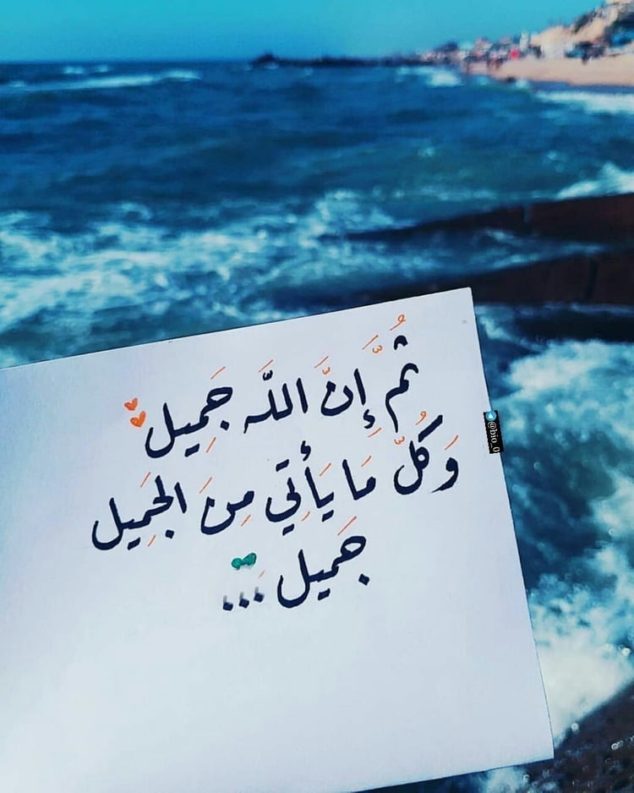 ثُمَّ إِنَّ اللَّه جَمِيل
وَكُلُّ مَا يَأْتِي مِنَ الجَمِيل
جَمِيل ...
@bio_0